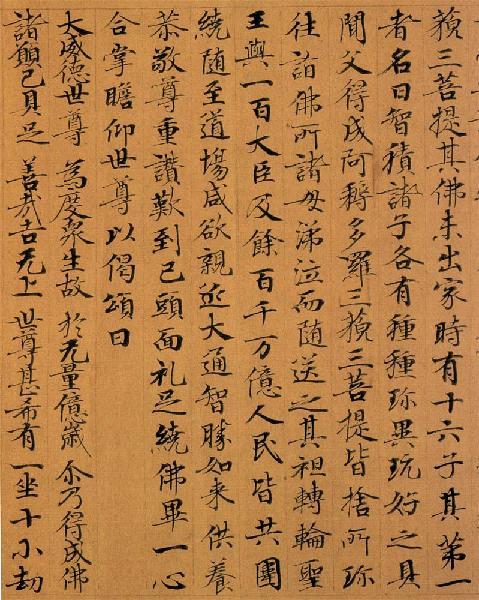 藐三菩提其佛未出家時有十六子其第一
者名曰智積諸子各有種種珎異玩好之具
聞父得成阿耨多羅三藐三菩提皆捨所珎
往詣佛所諸母涕泣而隨送之其祖轉輪聖
王與一百大臣及餘百千万億人民皆共圍
繞隨至道場咸欲親近大通智勝如来供養
恭敬尊重讚歎到已頭面礼足繞佛畢一心
合掌瞻仰世尊以偈頌曰
大威德世尊 為度衆生故 於无量億歲 尒乃得成佛
諸願已具足 善哉吉无上 世尊甚希有 一坐十小劫